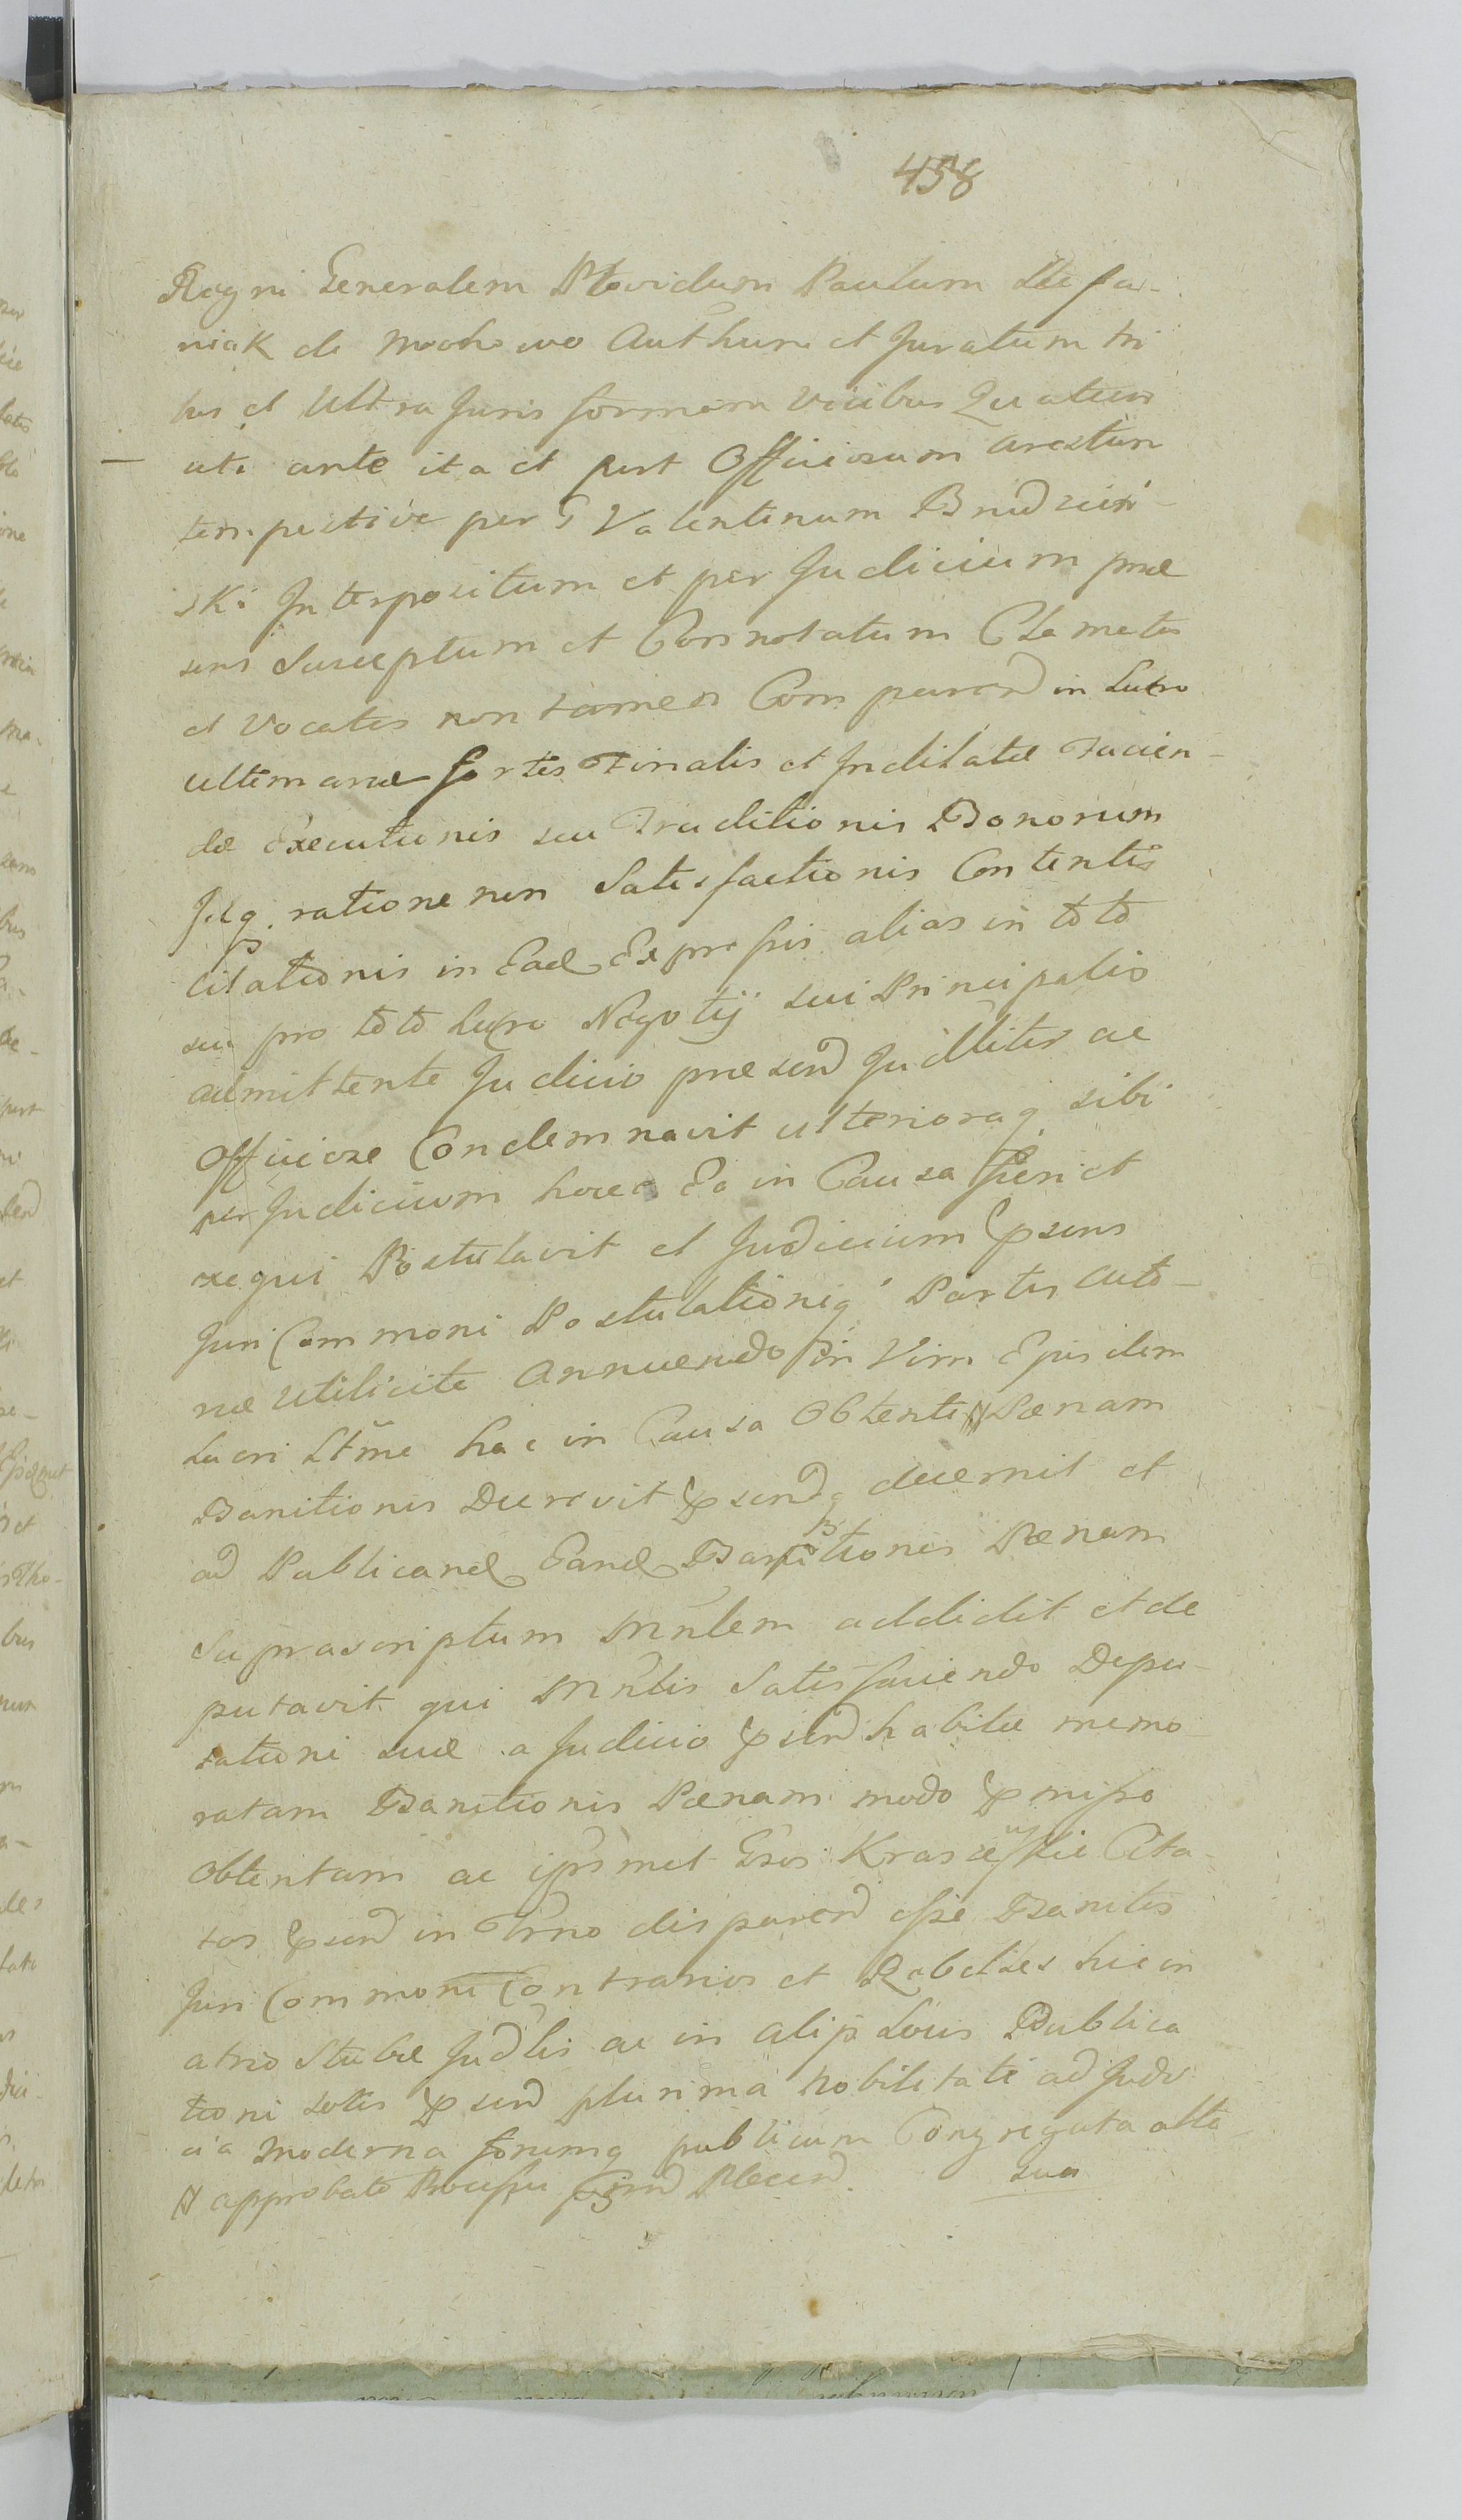 458
Regni Generalem Providum Paulum Stefa-
niak de Mochowo Authum et Juratum tri
bus et Ultra Juris formam vicibus Quatuor
uti ante ita et post Officiosum arestum
tempestive per G Valentinum Brudzin
ski Interpositum et per Judicium prae
sens Susceptum et Connotatum Clamatos
et Vocatos non tamen Comparend in Lucro
ultimanae sortis Finalis et Indilatae Facien-
dae Executionis seu Traditionis Bonorum
Idq ratione non Satisfactionis Contentis
Citationis in Ead Expressis alias in toto
seu pro toto lucro Negotij sui Principalis
admittente Judicio praesend Judlliter ac
Officiose Condemnavit ulterioraq sibi
per Judicium hocce Ea in Causa Fieri et
exequi Postulavit et Judicium psens
Juri Commoni Postulationiq Partis Acto-
reae utilicite Annuendo in Vim Ejusdem
Lucri Ltme hac in Causa Obtenti # Paenam
Banitionis Decrevit psendq decernit et
ad Publicand Eand Banitionis Paenam
Suprascriptum Mnlem addidit et de
putavit qui Mnlis Satisfaciendo Depu-
tationi suae a Judicio psend habitae memo-
ratam Banitionis Paenam modo pmisso
Obtentam ac ipsmet Gsos Krasinskie Cita-
tos psend in Trno disparend esse Banitos
Juri Commoni Contrarios et Rebelles hic in
atrio Stubae Judlis ac in alijs Locis Publica
tioni solis psend plurima Nobilitate ad Judi
cia Moderna forumq publicum Congregata alta
# approbato Processu Plocen.
sua